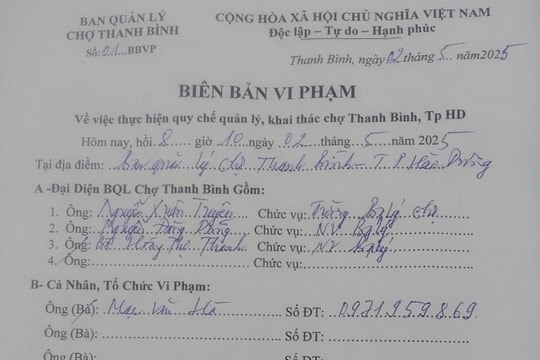 BAN QUẢN LÝ
CHỢ THANH BÌNH
Số:01...BBVP
CỘNG HÒA XÃ HỘI CHỦ NGHĨA VIỆT NAM
Độc lập – Tự do – Hạnh phúc
Thanh Bình, ngày 02 tháng 5 năm 2025
BIÊN BẢN VI PHẠM
Về việc thực hiện quy chế quản lý, khai thác chợ Thanh Bình, Tp HD
Hôm nay, hồi 8 giờ 10 ngày 02 tháng 5 năm 2025
Tại địa điểm: Ban quản lý chợ Thanh Bình – T.P Hải Dương
A -Đại Diện BQL Chợ Thanh Bình Gồm:
1. Ông: Nguyễn Xuân Chức vụ: Trưởng BQLý chợ
2. Ông: Nguyễn Chức vụ: N.V BQLý
3. Ông: Thị Thanh Chức vụ: N.V BQLý
4. Ông: Chức vụ:
B- Cá Nhân, Tổ Chức Vi Phạm:
Ông (Bà): Mạc Văn Hà Số ĐT: 0971.959.869
Ông (Bà): Số ĐT:
Ông (Bà): Số ĐT: